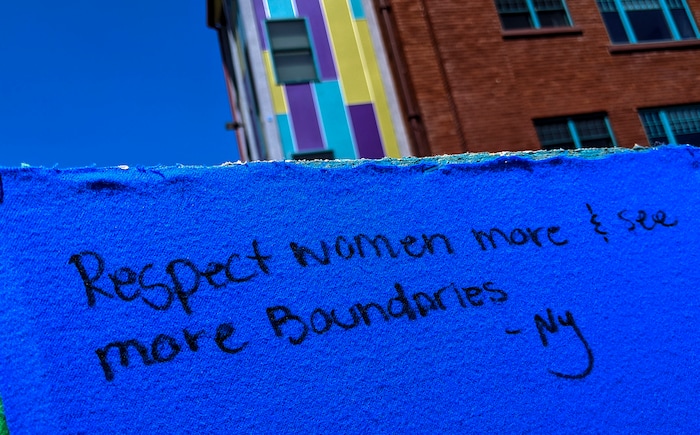 Respect women more & see
more Boundaries
- Ny